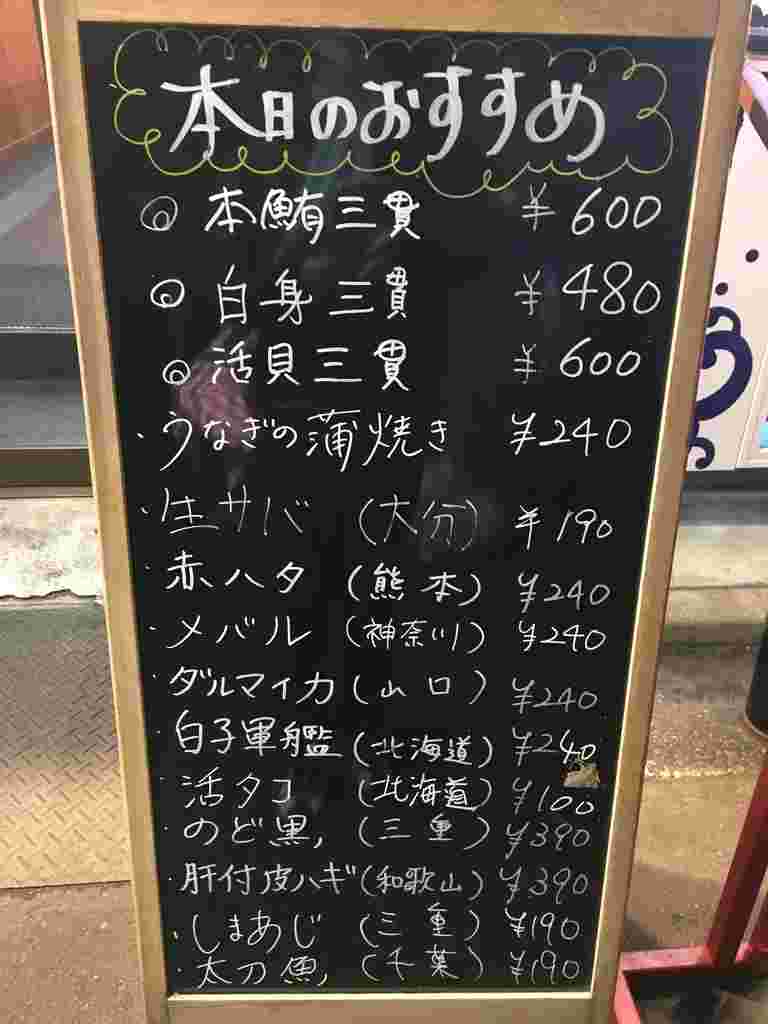 本日のおすすめ
◎ 本鮪三貫 ¥600
◎ 白身三貫 ¥480
◎ 活貝三貫 ¥600
・うなぎの蒲焼き ¥240
・生サバ (大分) ¥190
・赤ハタ (熊本) ¥240
・メバル (神奈川) ¥240
・ダルマイカ (山口) ¥240
・白子軍艦 (北海道) ¥240
・活タコ (北海道) ¥100
・のど黒 (三重) ¥390
・肝付皮ハギ (和歌山) ¥390
・しまあじ (三重) ¥190
・太刀魚 (千葉) ¥190